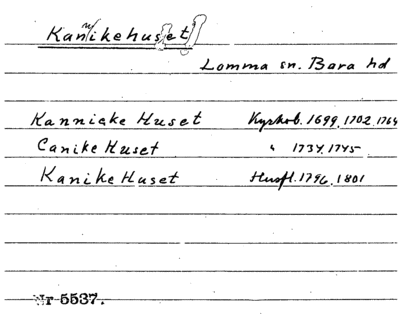 Kannikehuset
Lomma sn. Bara hd
Kannicke Huset Kyrkob. 1699, 1702, 1764
Canike Huset " 1734, 1745
Kanike Huset Husfl. 1796, 1801
Nr 5537.